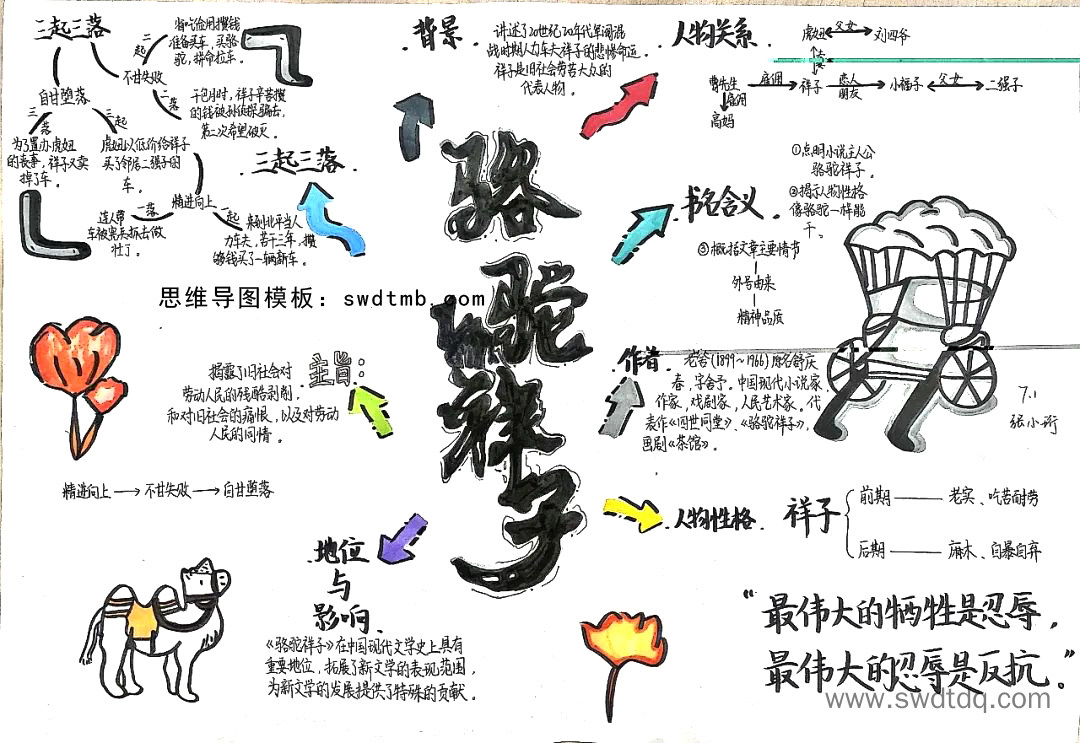 三起三落
自甘堕落
不甘失败
二起
省吃俭用攒钱
准备买车，买骆
驼，拼命拉车。
二落
干包月时，祥子辛苦攒
的钱被孙侦探骗去，
第二次希望破灭。
三落
为了置办虎妞
的丧事，祥子又卖
掉了车。
三起
虎妞以低价给祥子
买了邻居二强子的
车。
精进向上
一落
连人带
车被宪兵抓去做
壮丁。
一起
来到北平当人
力车夫，苦干三年，攒
够钱买了一辆新车。
三起三落.
背景.
讲述了20世纪20年代军阀混
战时期人力车夫祥子的悲惨命运。
祥子是旧社会劳苦大众的
代表人物。
人物关系
虎妞
父女
刘四爷
夫妻
曹先生
雇佣
祥子
恋人
朋友
小福子
父女
二强子
雇佣
高妈
骆驼祥子
书名含义.
①点明小说主人公
骆驼祥子。
②揭示人物性格
像骆驼一样能
干。
③概括文章主要情节
外号由来
精神品质
思维导图模板：swdtmb.com
主旨：
揭露了旧社会对
劳动人民的残酷剥削，
和对旧社会的痛恨，以及对劳动
人民的同情。
作者.
老舍(1899~1966)原名舒庆
春，字舍予。中国现代小说家
作家，戏剧家，人民艺术家。代
表作《四世同堂》、《骆驼祥子》，
画剧《茶馆》。
7.1
张小珩
精进向上→不甘失败→自甘堕落
人物性格.
祥子
前期——老实、吃苦耐劳
后期——麻木、自暴自弃
.地位
与
影响.
《骆驼祥子》在中国现代文学史上具有
重要地位，拓展了新文学的表现范围，
为新文学的发展提供了特殊的贡献。
“最伟大的牺牲是忍辱，
最伟大的忍辱是反抗。”
www.swdtdq.com